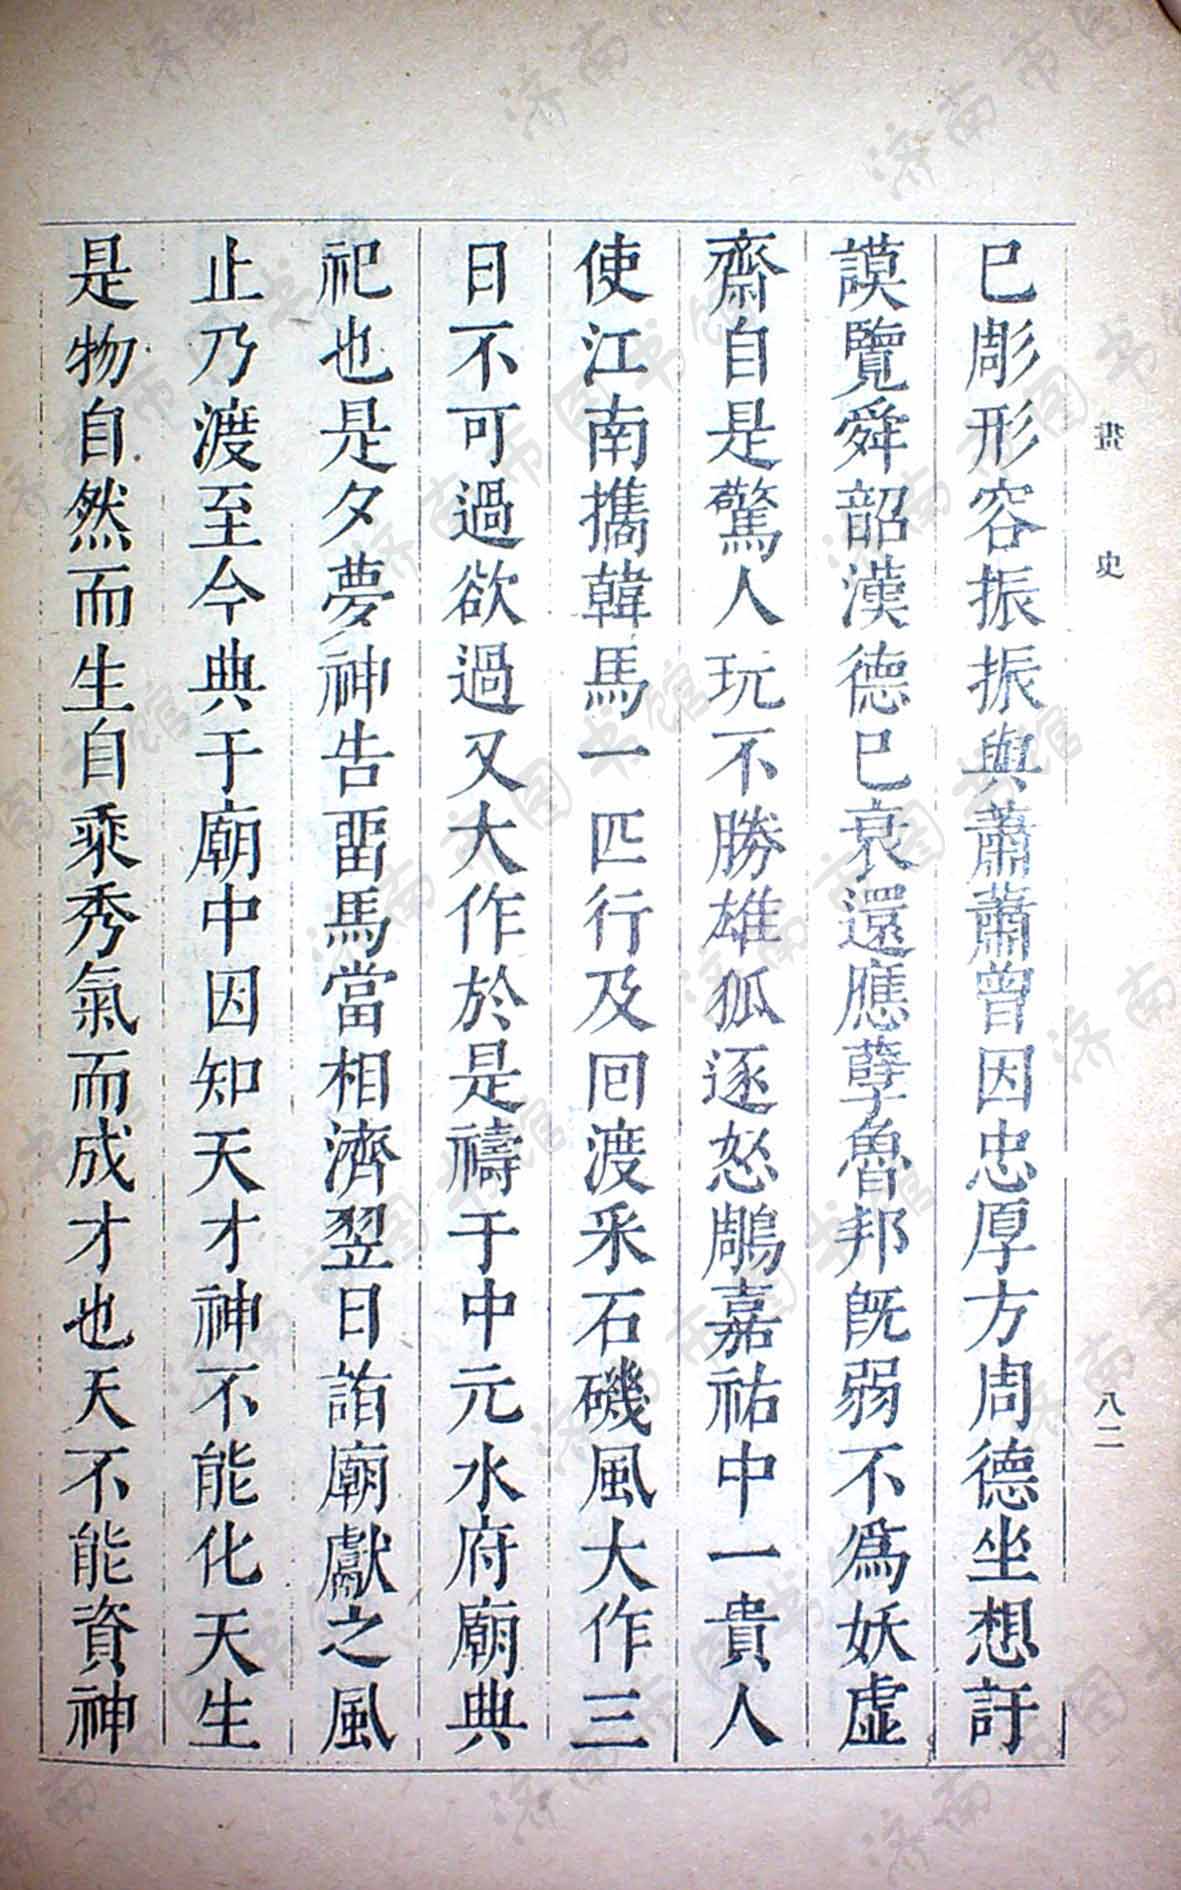 畫史 八二
已彫形容振振與蕭蕭曾因忠厚方周德坐想訏
謨覽舜韶漢德已衰還應孽魯邦旣弱不爲妖虛
齋自是驚人玩不勝雄狐逐怒鵰嘉祐中一貴人
使江南攜韓馬一匹行及囘渡采石磯風大作三
日不可過欲過又大作於是禱于中元水府廟典
祀也是夕夢神告畱馬當相濟翌日詣廟獻之風
止乃渡至今典于廟中因知天才神不能化天生
是物自然而生自乘秀氣而成才也天不能資神
济南市图书馆